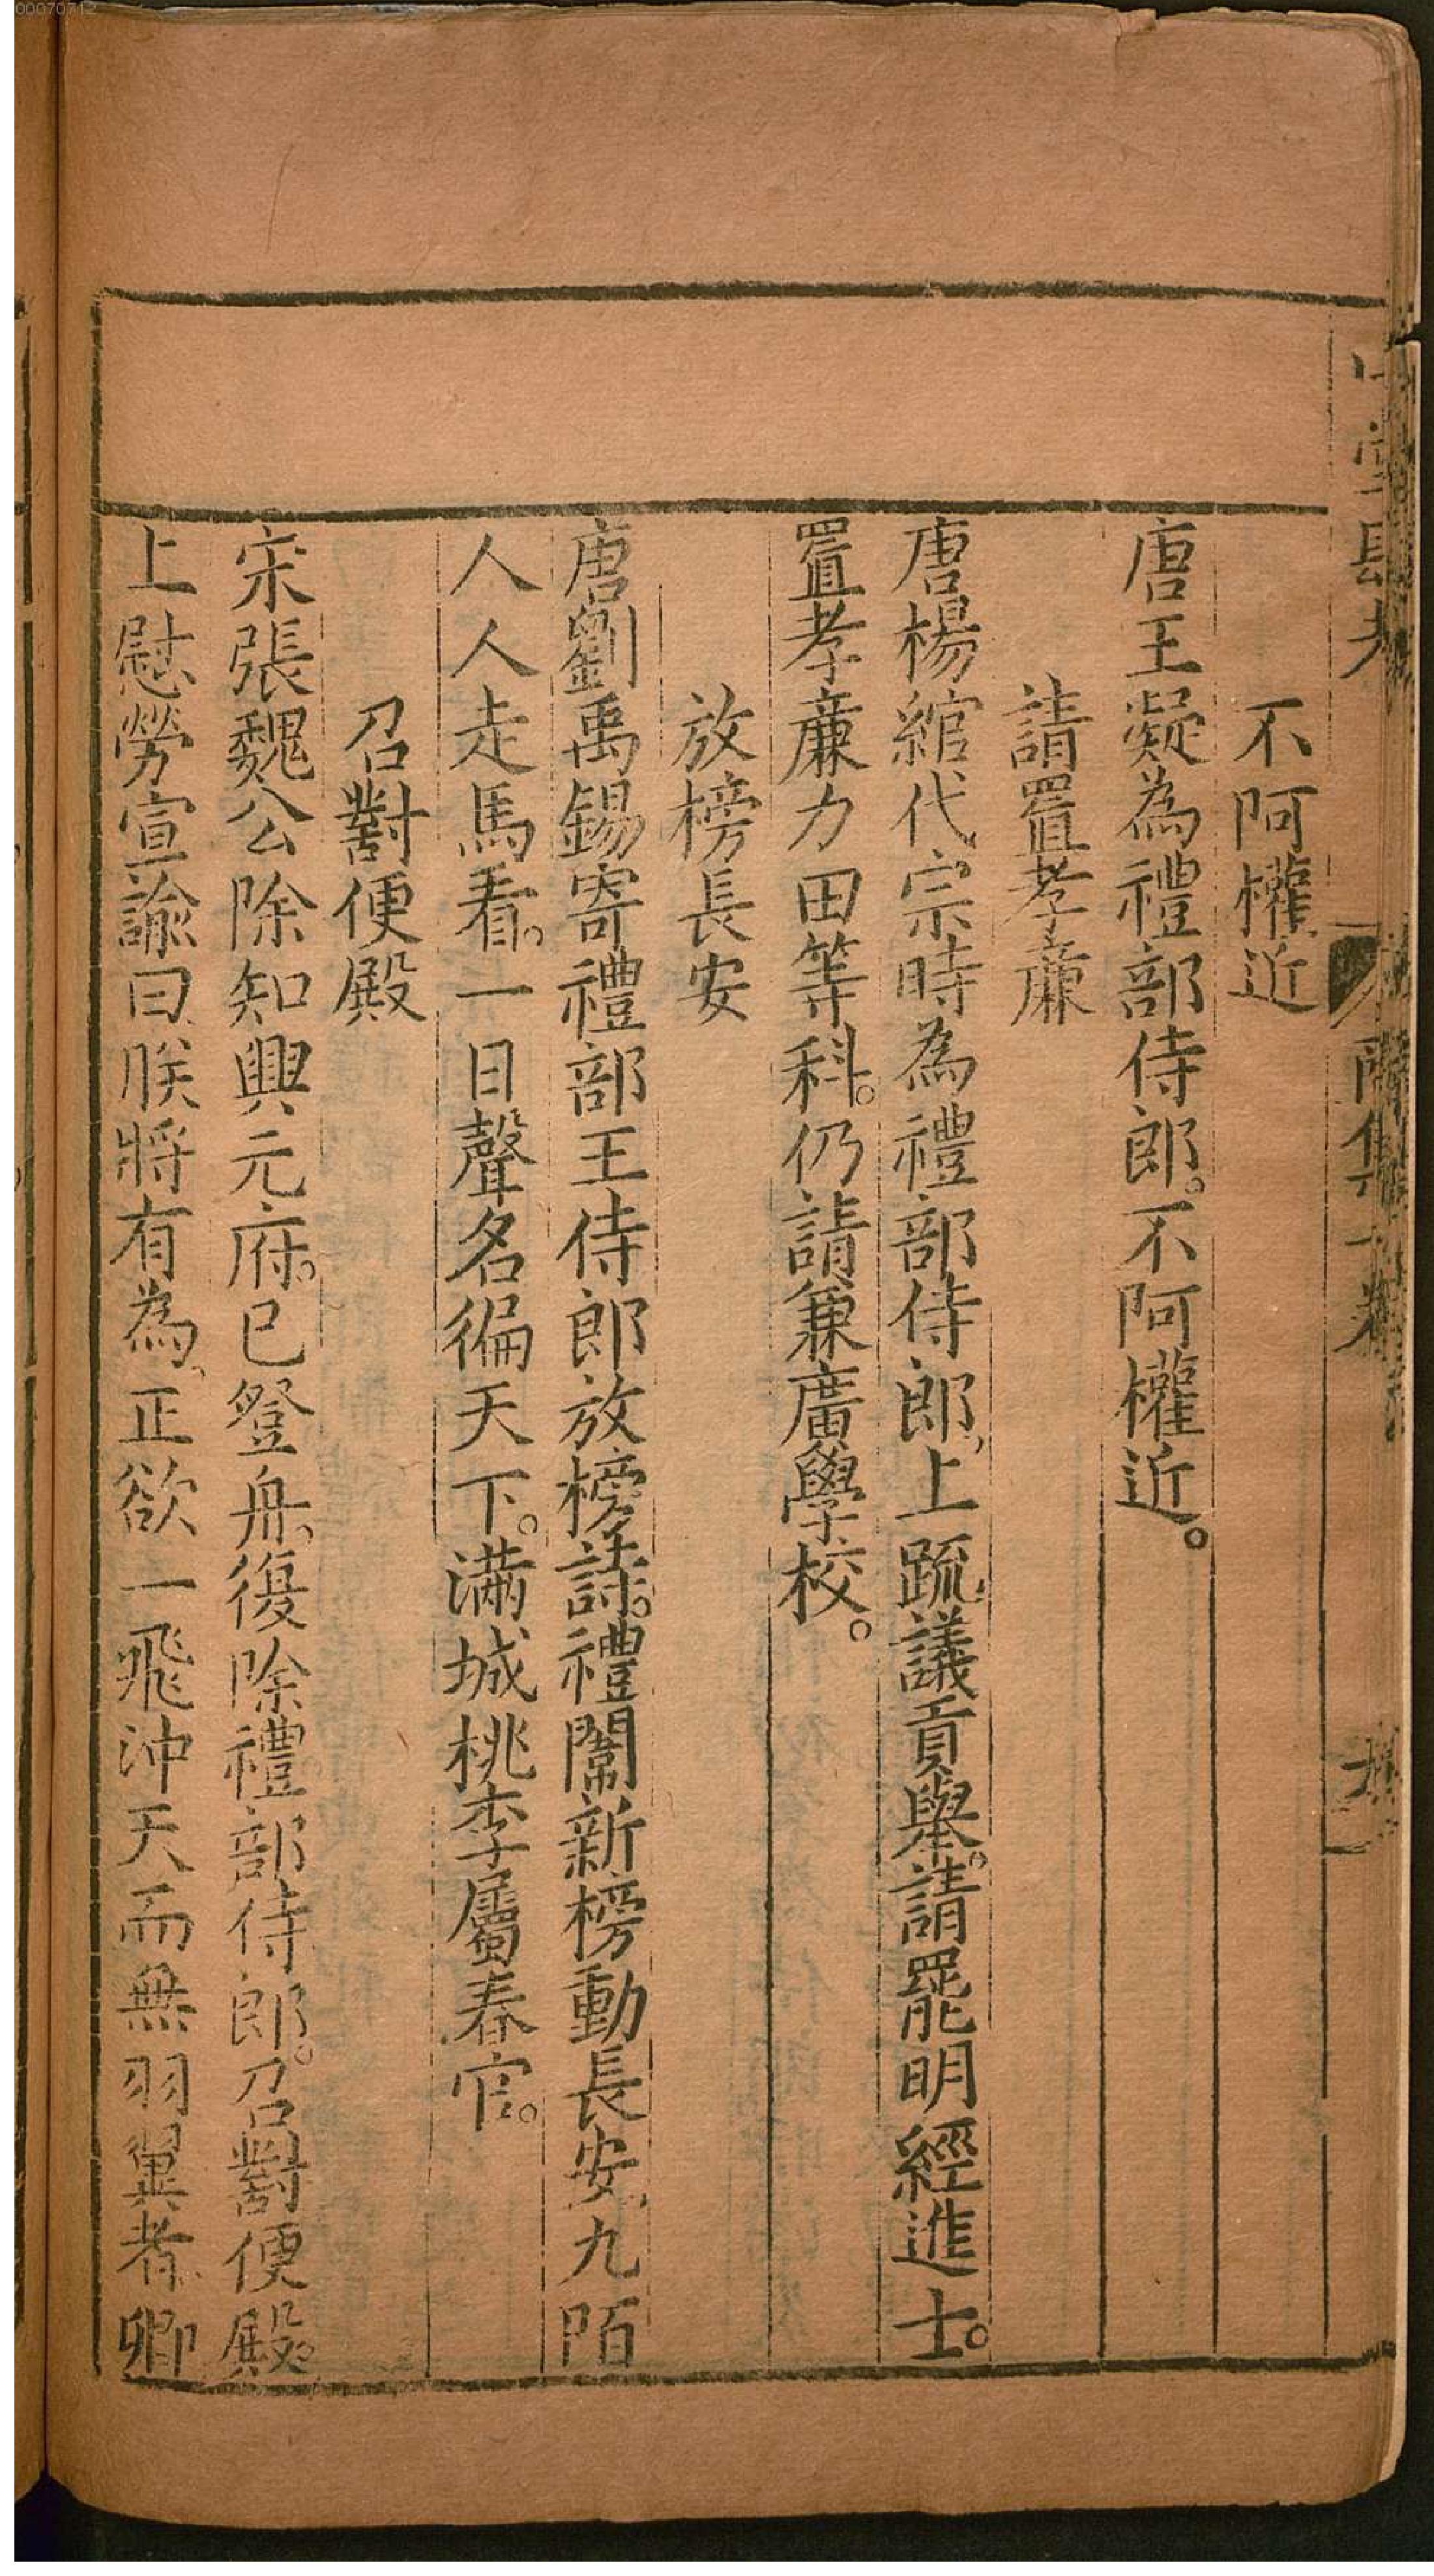 00070712
不阿權近
唐王凝為禮部侍郎。不阿權近。
請置孝廉
唐楊綰代宗時為禮部侍郎、上疏議貢舉。請罷明經進士。
置孝廉力田等科。仍請兼廣學校。
放榜長安
唐劉禹錫寄禮部王侍郎放榜詩。禮闈新榜動長安、九陌
人人走馬看。一日聲名徧天下。滿城桃李屬春官。
召對便殿
宋張魏公除知興元府。已登舟、復除禮部侍郎。召對便殿
上慰勞宣諭曰、朕將有為、正欲一飛沖天而無羽翼者、卿